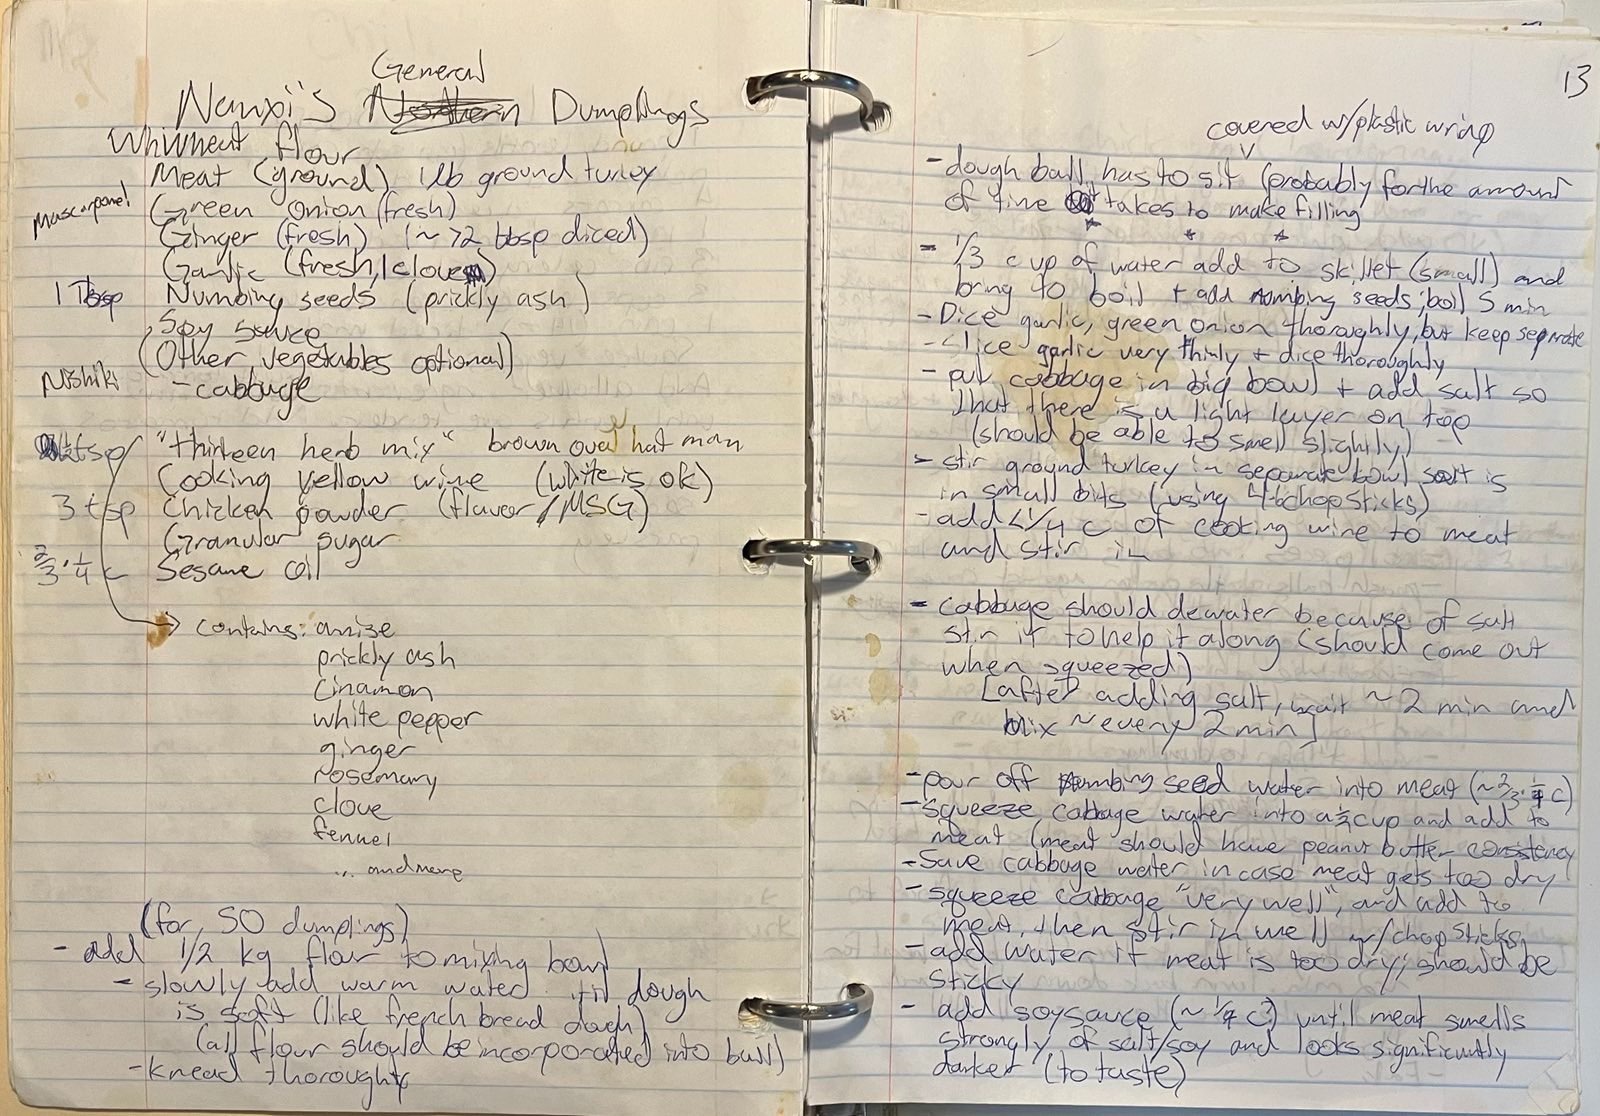 General
Nanxi's Northern Dumplings
Wh Wheat flour
Meat (ground) 1 lb ground turkey
Mascarpone
Green onion (fresh)
Ginger (fresh) (~ >2 tbsp diced)
Garlic (fresh, 1 clove)
1 Tbsp Numbing seeds (prickly ash)
Soy sauce
(Other vegetables optional)
Nishiki
- cabbage
tsp "thirteen herb mix" brown oval hat man
Cooking yellow wine (white is ok)
3 tsp Chicken powder (flavor/MSG)
Granular sugar
2/3 · 1/4 c Sesame oil
contains: anise
prickly ash
cinamon
white pepper
ginger
rosemary
clove
fennel
... and more
(for 50 dumplings)
- add 1/2 kg flour to mixing bowl
- slowly add warm water 'til dough
is soft (like french bread dough)
(all flour should be incorporated into ball)
- knead thoroughly
13
covered w/plastic wrap
- dough ball has to sit (probably for the amount
of time it takes to make filling
- 1/3 cup of water add to skillet (small) and
bring to boil + add numbing seeds; boil 5 min
- Dice garlic, green onion thoroughly, but keep separate
- slice garlic very thinly + dice thoroughly
- put cabbage in big bowl + add salt so
that there is a light layer on top
(should be able to smell slightly)
- stir ground turkey in separate bowl so it is
in small bits (using 4 chopsticks)
- add <1/4 c of cooking wine to meat
and stir in
- cabbage should dewater because of salt
stir it to help it along (should come out
when squeezed)
[after adding salt, wait ~2 min and
mix ~every 2 min]
- pour off numbing seed water into meat (~2/3 · 1/4 c)
- squeeze cabbage water into a 1/4 cup and add to
meat (meat should have peanut butter consistency
- Save cabbage water in case meat gets too dry
- squeeze cabbage "very well", and add to
meat, then stir in well w/chopsticks
- add water if meat is too dry; should be
sticky
- add soysauce (~1/4 c?) until meat smells
strongly of salt/soy and looks significantly
darker (to taste)